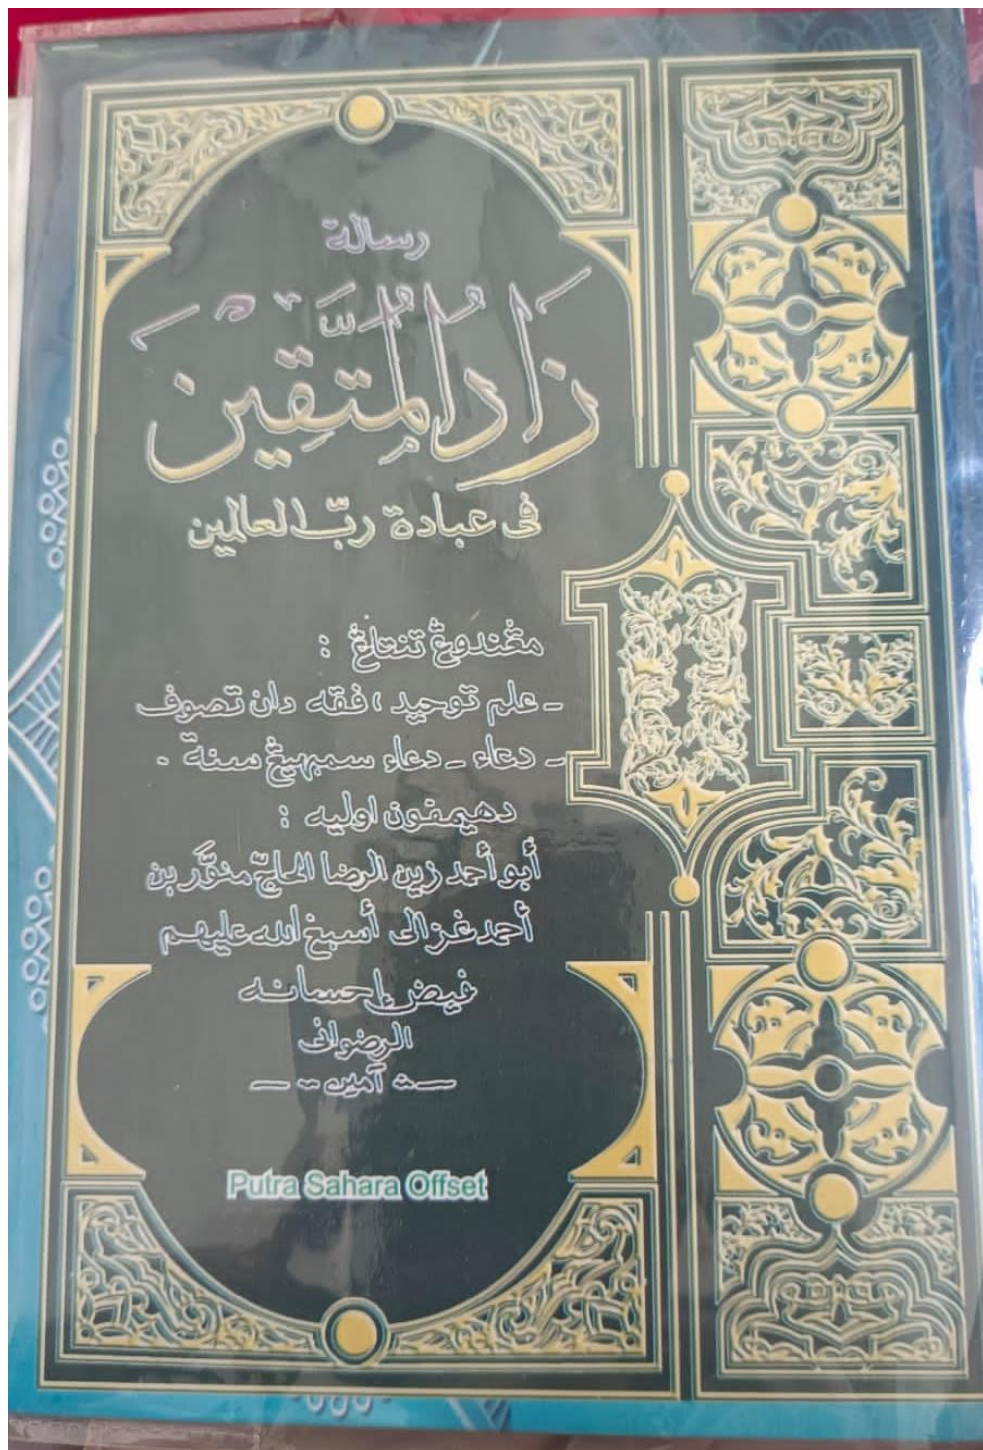 رسالة
زَادُ الْمُتَّقِيْنَ
فى عبادة ربّ العالمين
مڠندوڠ تنتاڠ :
ـ علم توحيد ، فقه دان تصوف
ـ دعاء ـ دعاء سمبهيڠ سنة .
دهيمڤون اوليه :
أبو أحمد زين الرضا الحاجّ منوّر بن
أحمد غزالى أسبغ الله عليهم
فيض إحسانه
الرضوانى
ـ . آمين . ـ
Putra Sahara Offset